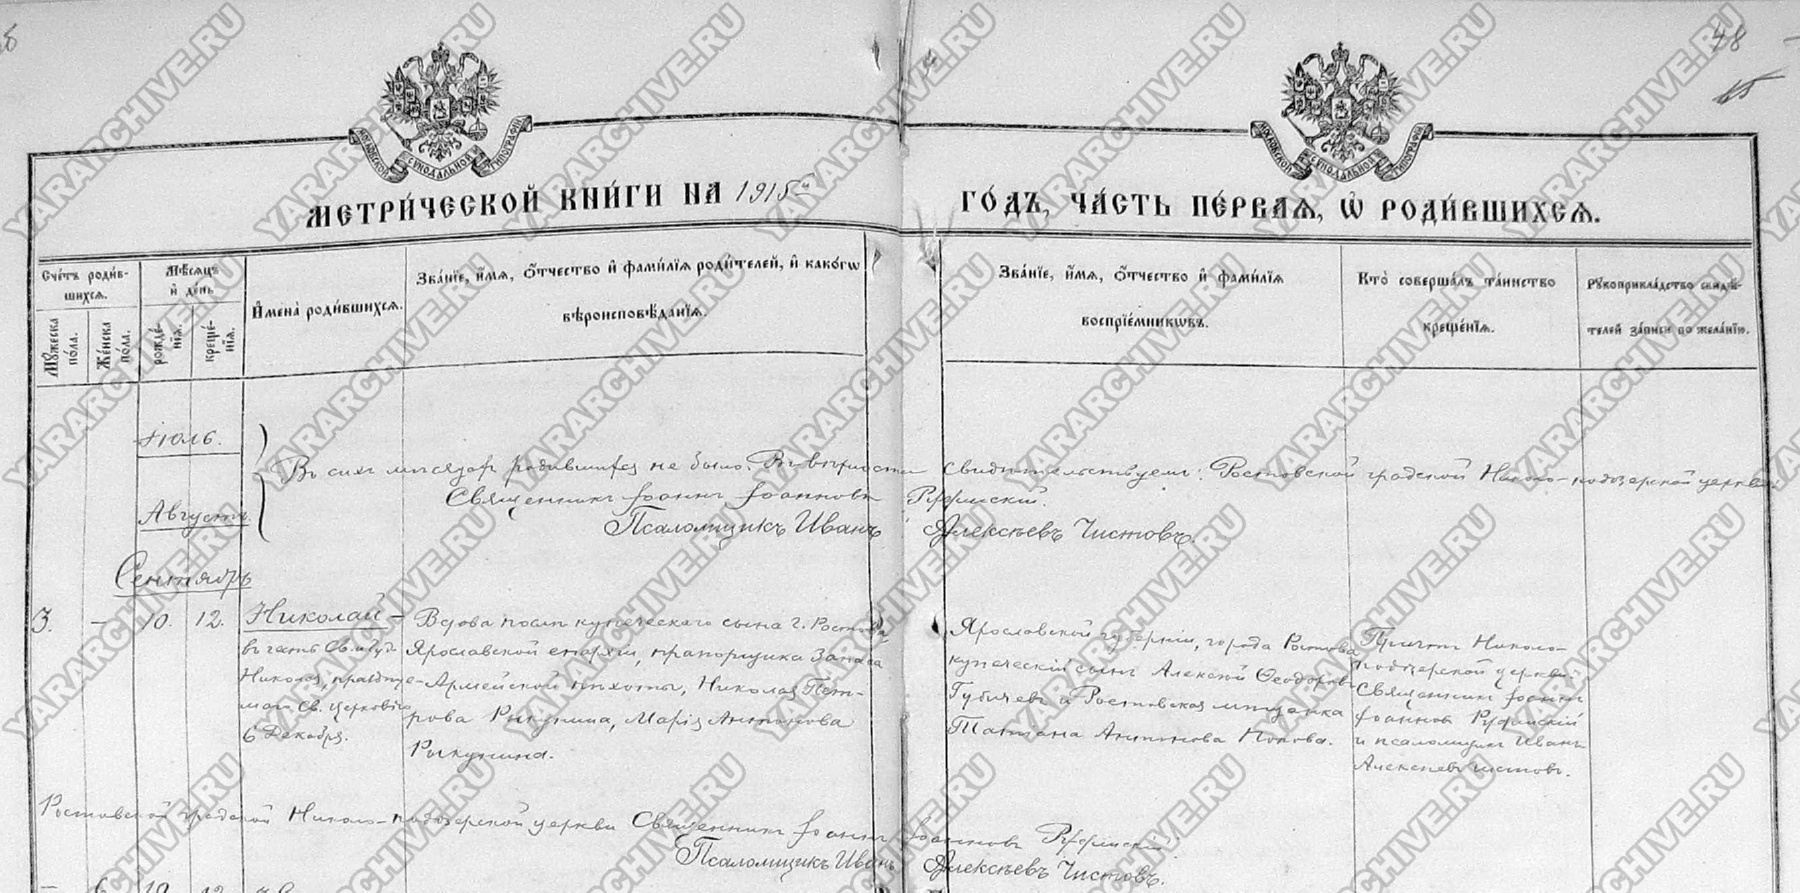 48
МЕТРИ́ЧЕСКОЙ КНИ́ГИ НА 1915й
ГО́ДЪ, ЧА́СТЬ ПЕ́РВАЯ, Ѡ҆ РОДИ́ВШИХСЯ.
Сче́тъ роди́в-
шихся.
Му́жеска по́ла.
Же́нска по́ла.
Мѣ́сяцъ
и҆ де́нь
рожде́-
нїя.
креще́-
нїя.
И҆мена̀ роди́вшихся.
Зва́нїе, и҆́мя, ѻ҆́тчество и҆ фами́лїя роди́телей, и҆ како́гѡ
вѣроисповѣ́данїя.
Зва́нїе, и҆́мя, ѻ҆́тчество и҆ фами́лїя
воспрїе́мникѡвъ.
Кто̀ соверша́лъ та́инство
креще́нїя.
Рꙋкоприкла́дство свидѣ́-
телей за́писи по жела́нїю.
Іюль.
Августъ.
Въ сихъ мѣсяцахъ родившихся не было. Въ вѣрности свидѣтельствуемъ: Ростовской градской Николо-подозерской церкви
Священникъ Іоаннъ Іоанновъ Рафинскій.
Псаломщикъ Иванъ Алексѣевъ Чистовъ.
Сентябрь
3. – 10. 12. Николай –
въ честь Свят.
Николая, праздну-
емаго Св. церковію
6 Декабря.
Вдова послѣ купеческаго сына г. Ростова
Ярославской епархіи, прапорщика Запаса
Армейской пѣхоты, Николая Пет-
рова Рыкунина, Марія Антонова
Рыкунина.
Ярославской губерніи, города Ростова
купеческій сынъ Алексѣй Ѳеодоровъ
и Ростовская мѣщанка
Татіана Антонова Попова.
Причтъ Николо-
подозерской церкви:
Священникъ Іоаннъ
Іоанновъ Рафинскій
и псаломщикъ Иванъ
Алексѣевъ Чистовъ.
Ростовской градской Николо-подозерской церкви Священникъ Іоаннъ Іоанновъ Рафинскій
Псаломщикъ Иванъ Алексѣевъ Чистовъ.
YARARCHIVE.RU